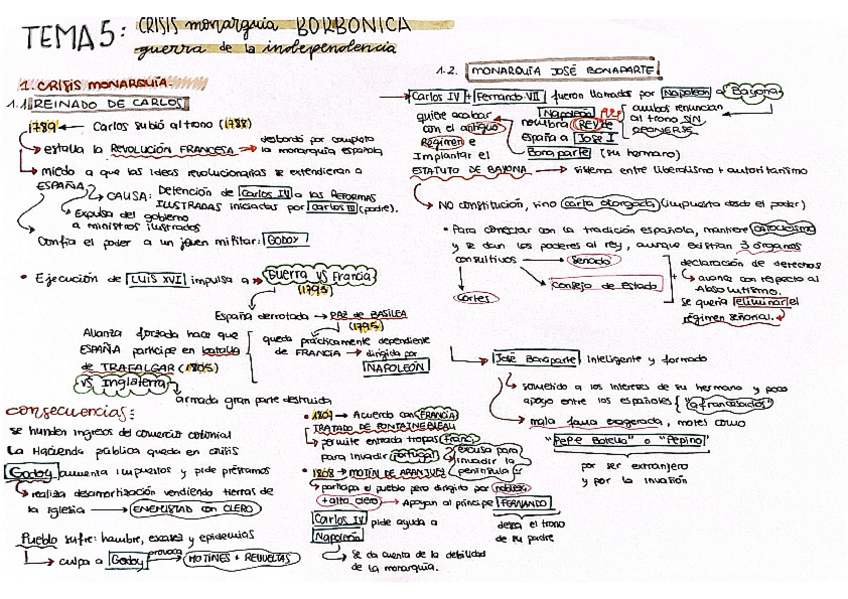 TEMA 5: CRISIS monarquía BORBONICA
guerra de la independencia
1. CRISIS MONARQUÍA
1.1 REINADO DE CARLOS
1789 ← Carlos subió al trono (1788)
→ estalla la REVOLUCIÓN FRANCESA → desbordó por completo
la monarquía española
→ miedo a que las ideas revolucionarias se extendieran a
ESPAÑA
→ CAUSA: Detención de Carlos IV a las REFORMAS
ILUSTRADAS iniciadas por Carlos III (padre).
→ Expulsa del gobierno
a ministros ilustrados
Confía el poder a un joven militar: Godoy
• Ejecución de LUIS XVI impulsa a → Guerra VS Francia
(1793)
España derrotada → PAZ de BASILEA
(1795)
Alianza forzada hace que
ESPAÑA participe en batalla
de TRAFALGAR (1805)
VS Inglaterra
queda prácticamente dependiente
de FRANCIA → dirigida por
NAPOLEÓN
→ armada gran parte destruida
consecuencias:
Se hunden ingresos del comercio colonial
La Hacienda pública queda en crisis
Godoy aumenta impuestos y pide préstamos
→ realiza desamortización vendiendo tierras de
la iglesia → ENEMISTAD con CLERO
Pueblo sufre: hambre, escasez y epidemias
→ culpa a Godoy provoca → MOTINES + REVUELTAS
• 1807 → Acuerdo con FRANCIA
TRATADO DE FONTAINEBLEAU
→ permite entrada tropas franc.
para invadir Portugal → excusa para
invadir la
península
• 1808 → MOTÍN DE ARANJUEZ
→ participa el pueblo pero dirigido por nobleza
+ alto clero → Apoyan al príncipe FERNANDO
desea el trono
de su padre
Carlos IV pide ayuda a
Napoleón
→ Se da cuenta de la debilidad
de la monarquía.
1.2. MONARQUÍA JOSÉ BONAPARTE
→ Carlos IV + Fernando VII fueron llamados por Napoleón a Bayona
ambos renuncian
al trono SIN
OPONERSE
Napoleón
nombra REY de
España a José I
Bonaparte (su hermano)
quiere acabar
con el antiguo
Régimen e
Implantar el
ESTATUTO DE BAYONA → sistema entre liberalismo + autoritarismo
→ NO constitución, sino carta otorgada (impuesta desde el poder)
• Para conectar con la tradición española, mantiene catolicismo
y se dan los poderes al rey, aunque existían 3 órganos
consultivos → Senado
→ Consejo de Estado
Cortes
+ declaración de derechos
→ avance con respecto al
Absolutismo.
se quería eliminar el
régimen señorial.
→ José Bonaparte Inteligente y formado
→ sometido a los intereses de su hermano y poco
apoyo entre los españoles {"afrancesados"
→ mala fama exagerada, motes como
"Pepe Botella" o "Pepino"
por ser extranjero
y por la invasión